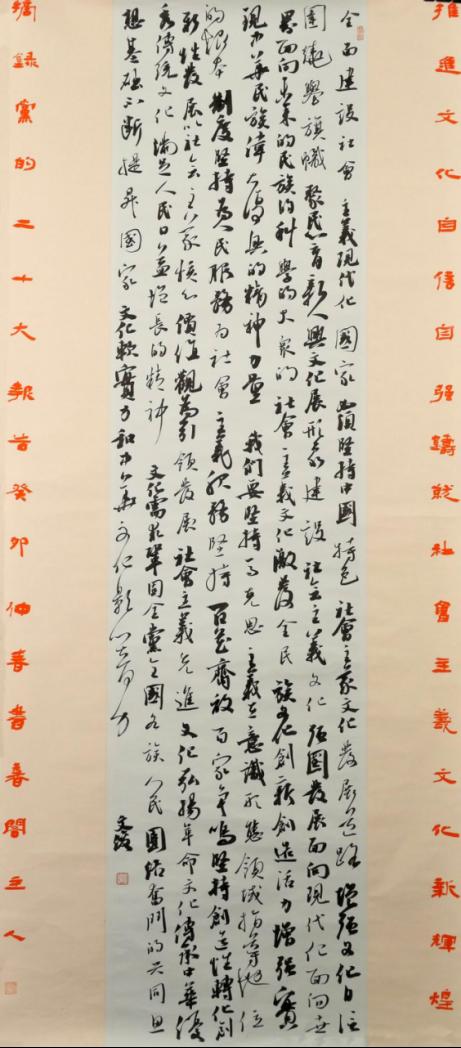 推進文化自信自强鑄就社會主義文化新輝煌
全面建設社會主義現代化國家必須堅持中國特色社會主義文化發展道路增强文化自信
圍繞舉旗幟聚民心育新人興文化展形象建設社會主義文化强國發展面向現代化面向世
界面向未來的民族的科學的大衆的社會主義文化激發全民族文化創新創造活力增强實
現中華民族偉大復興的精神力量我們要堅持馬克思主義在意識形態領域指導地位
的根本制度堅持爲人民服務爲社會主義服務堅持百花齊放百家爭鳴堅持創造性轉化創
新性發展以社會主義核心價值觀爲引領發展社會主義先進文化弘揚革命文化傳承中華優
秀傳統文化滿足人民日益增長的精神文化需求鞏固全黨全國各族人民團結奮鬥的共同思
想基礎不斷提昇國家文化軟實力和中華文化影響力
摘録黨的二十大報告癸卯仲春閣主人